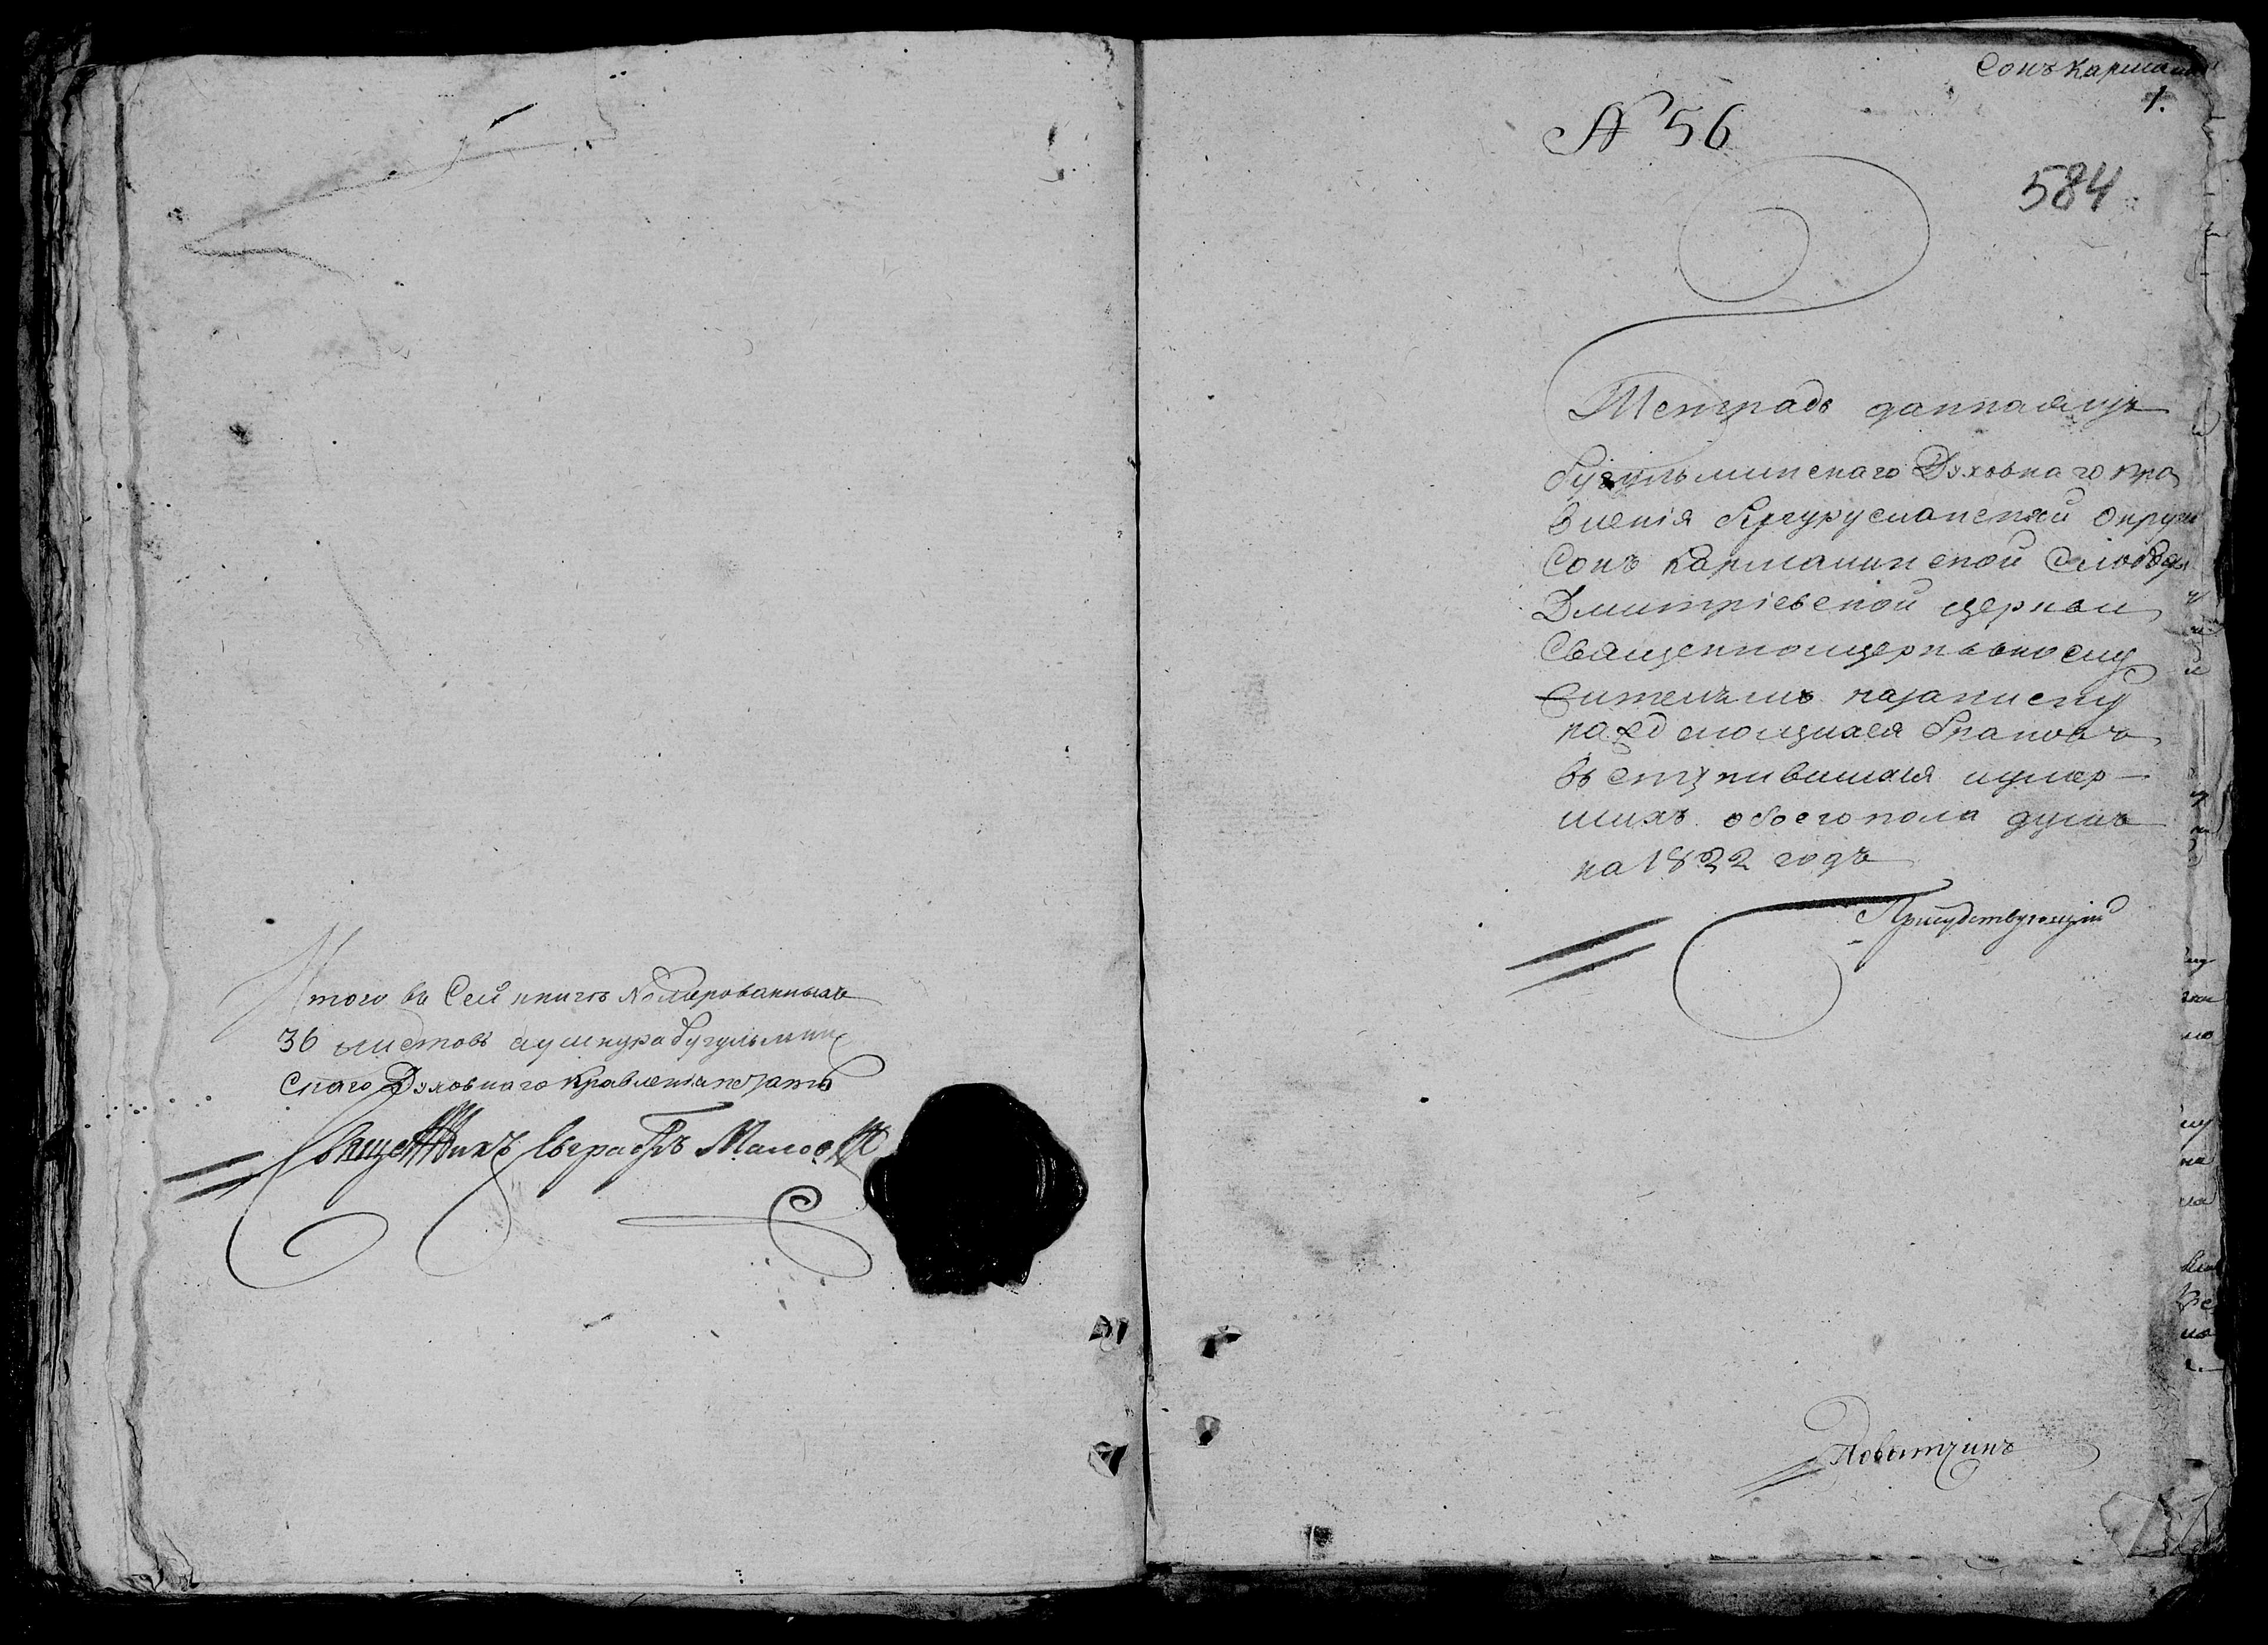 Итого въ Сей книгѣ Номерованныхъ
36 листовъ аушнура бугульмин
Скаго Духовнаго Правленія печать
Священникъ
Сокъ Кармали
1.
№ 56
584
Тетрадь данная изъ
бугульминскаго Духовнаго пра
вленія бугурусланской округи
Сокъ Кармалинской Слободы
Дмитріевской церкви
Священноцерковнослу
жителямъ назаписку
раждающихся бракомъ
въступившихся иумер-
шихъ обоего пола душъ
на 1822 годъ
Присудствующій